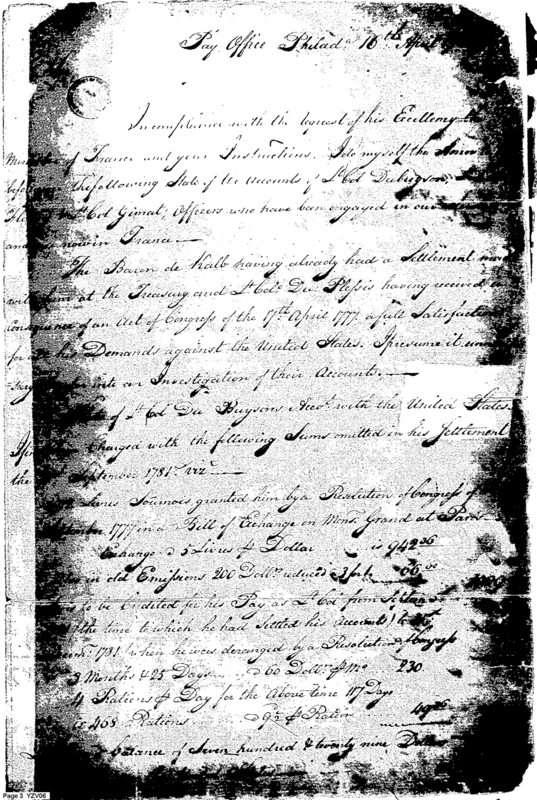 Pay Office Philada 16th April
In compliance with the request of his Excellency the
of France and your Instructions, I do myself the Honor
the following State of the Accounts of Lt Col Dubuysson,
Lt Col Gimat, Officers who have been engaged in our
and now in France —
The Baron de Kalb having already had a Settlement
at the Treasury and Lt Col Du Plessis having received, in
Consequence of an Act of Congress of the 17th April 1777. a full Satisfaction
for his Demands against the United States. I presume it
an Investigation of their Accounts. —
of Lt Col Du Buysons Acct with the United States.
Charged with the following Sums omitted in his Settlement
the September 1781. vizt —
Livres Tournois granted him by a Resolution of Congress of
1777 in a Bill of Exchange on Mons. Grand at Paris
Exchange 5 Livres ⅌ Dollar is 942 36
in old Emissions 200 Dollrs reduced 3 for 1 66 60
is to be Credited for his Pay as Lt Col from
the time to which he had settled his Accounts to
1781 when he was deranged by a Resolution of Congress
3 Months & 25 Days @ 60 Dollrs ⅌ mo 230
4 Rations ⅌ Day for the Above time 117 Days
is 468 Rations ⅌ Ration
balance of Seven hundred & twenty nine Dollars
Page 3 YZV06